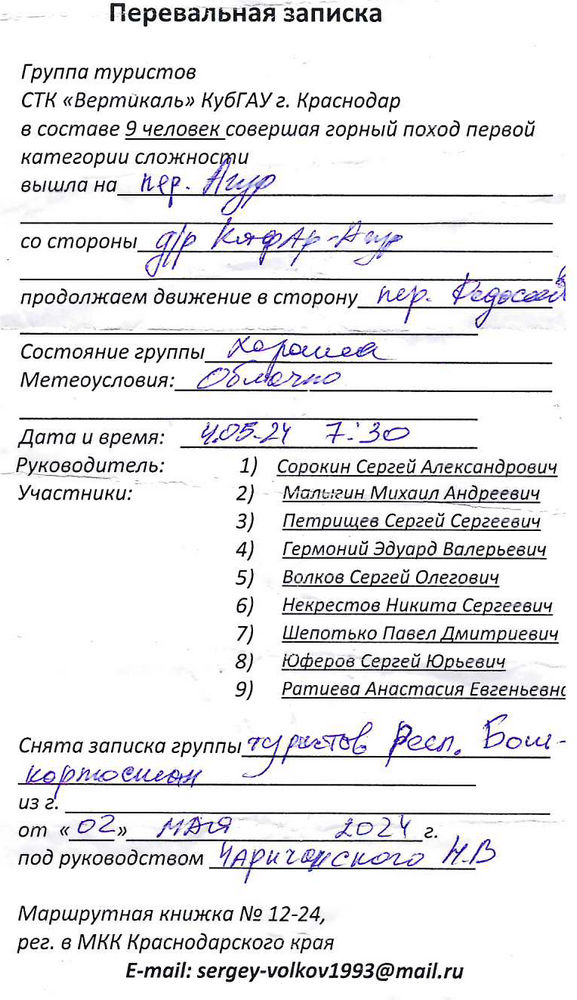 Перевальная записка
Группа туристов
СТК «Вертикаль» КубГАУ г. Краснодар
в составе 9 человек совершая горный поход первой
категории сложности
вышла на пер. Агур
со стороны д/р Кяфар-Агур
продолжаем движение в сторону пер. Федосеева
Состояние группы хорошее
Метеоусловия: Облачно
Дата и время: 4.05.24 7:30
Руководитель: 1) Сорокин Сергей Александрович
Участники: 2) Малыгин Михаил Андреевич
3) Петрищев Сергей Сергеевич
4) Гермоний Эдуард Валерьевич
5) Волков Сергей Олегович
6) Некрестов Никита Сергеевич
7) Шепотько Павел Дмитриевич
8) Юферов Сергей Юрьевич
9) Ратиева Анастасия Евгеньевна
Снята записка группы туристов Респ. Баш-
кортостан
из г.
от «02» мая 2024 г.
под руководством Чаричанского Н.В
Маршрутная книжка № 12-24,
рег. в МКК Краснодарского края
E-mail: sergey-volkov1993@mail.ru